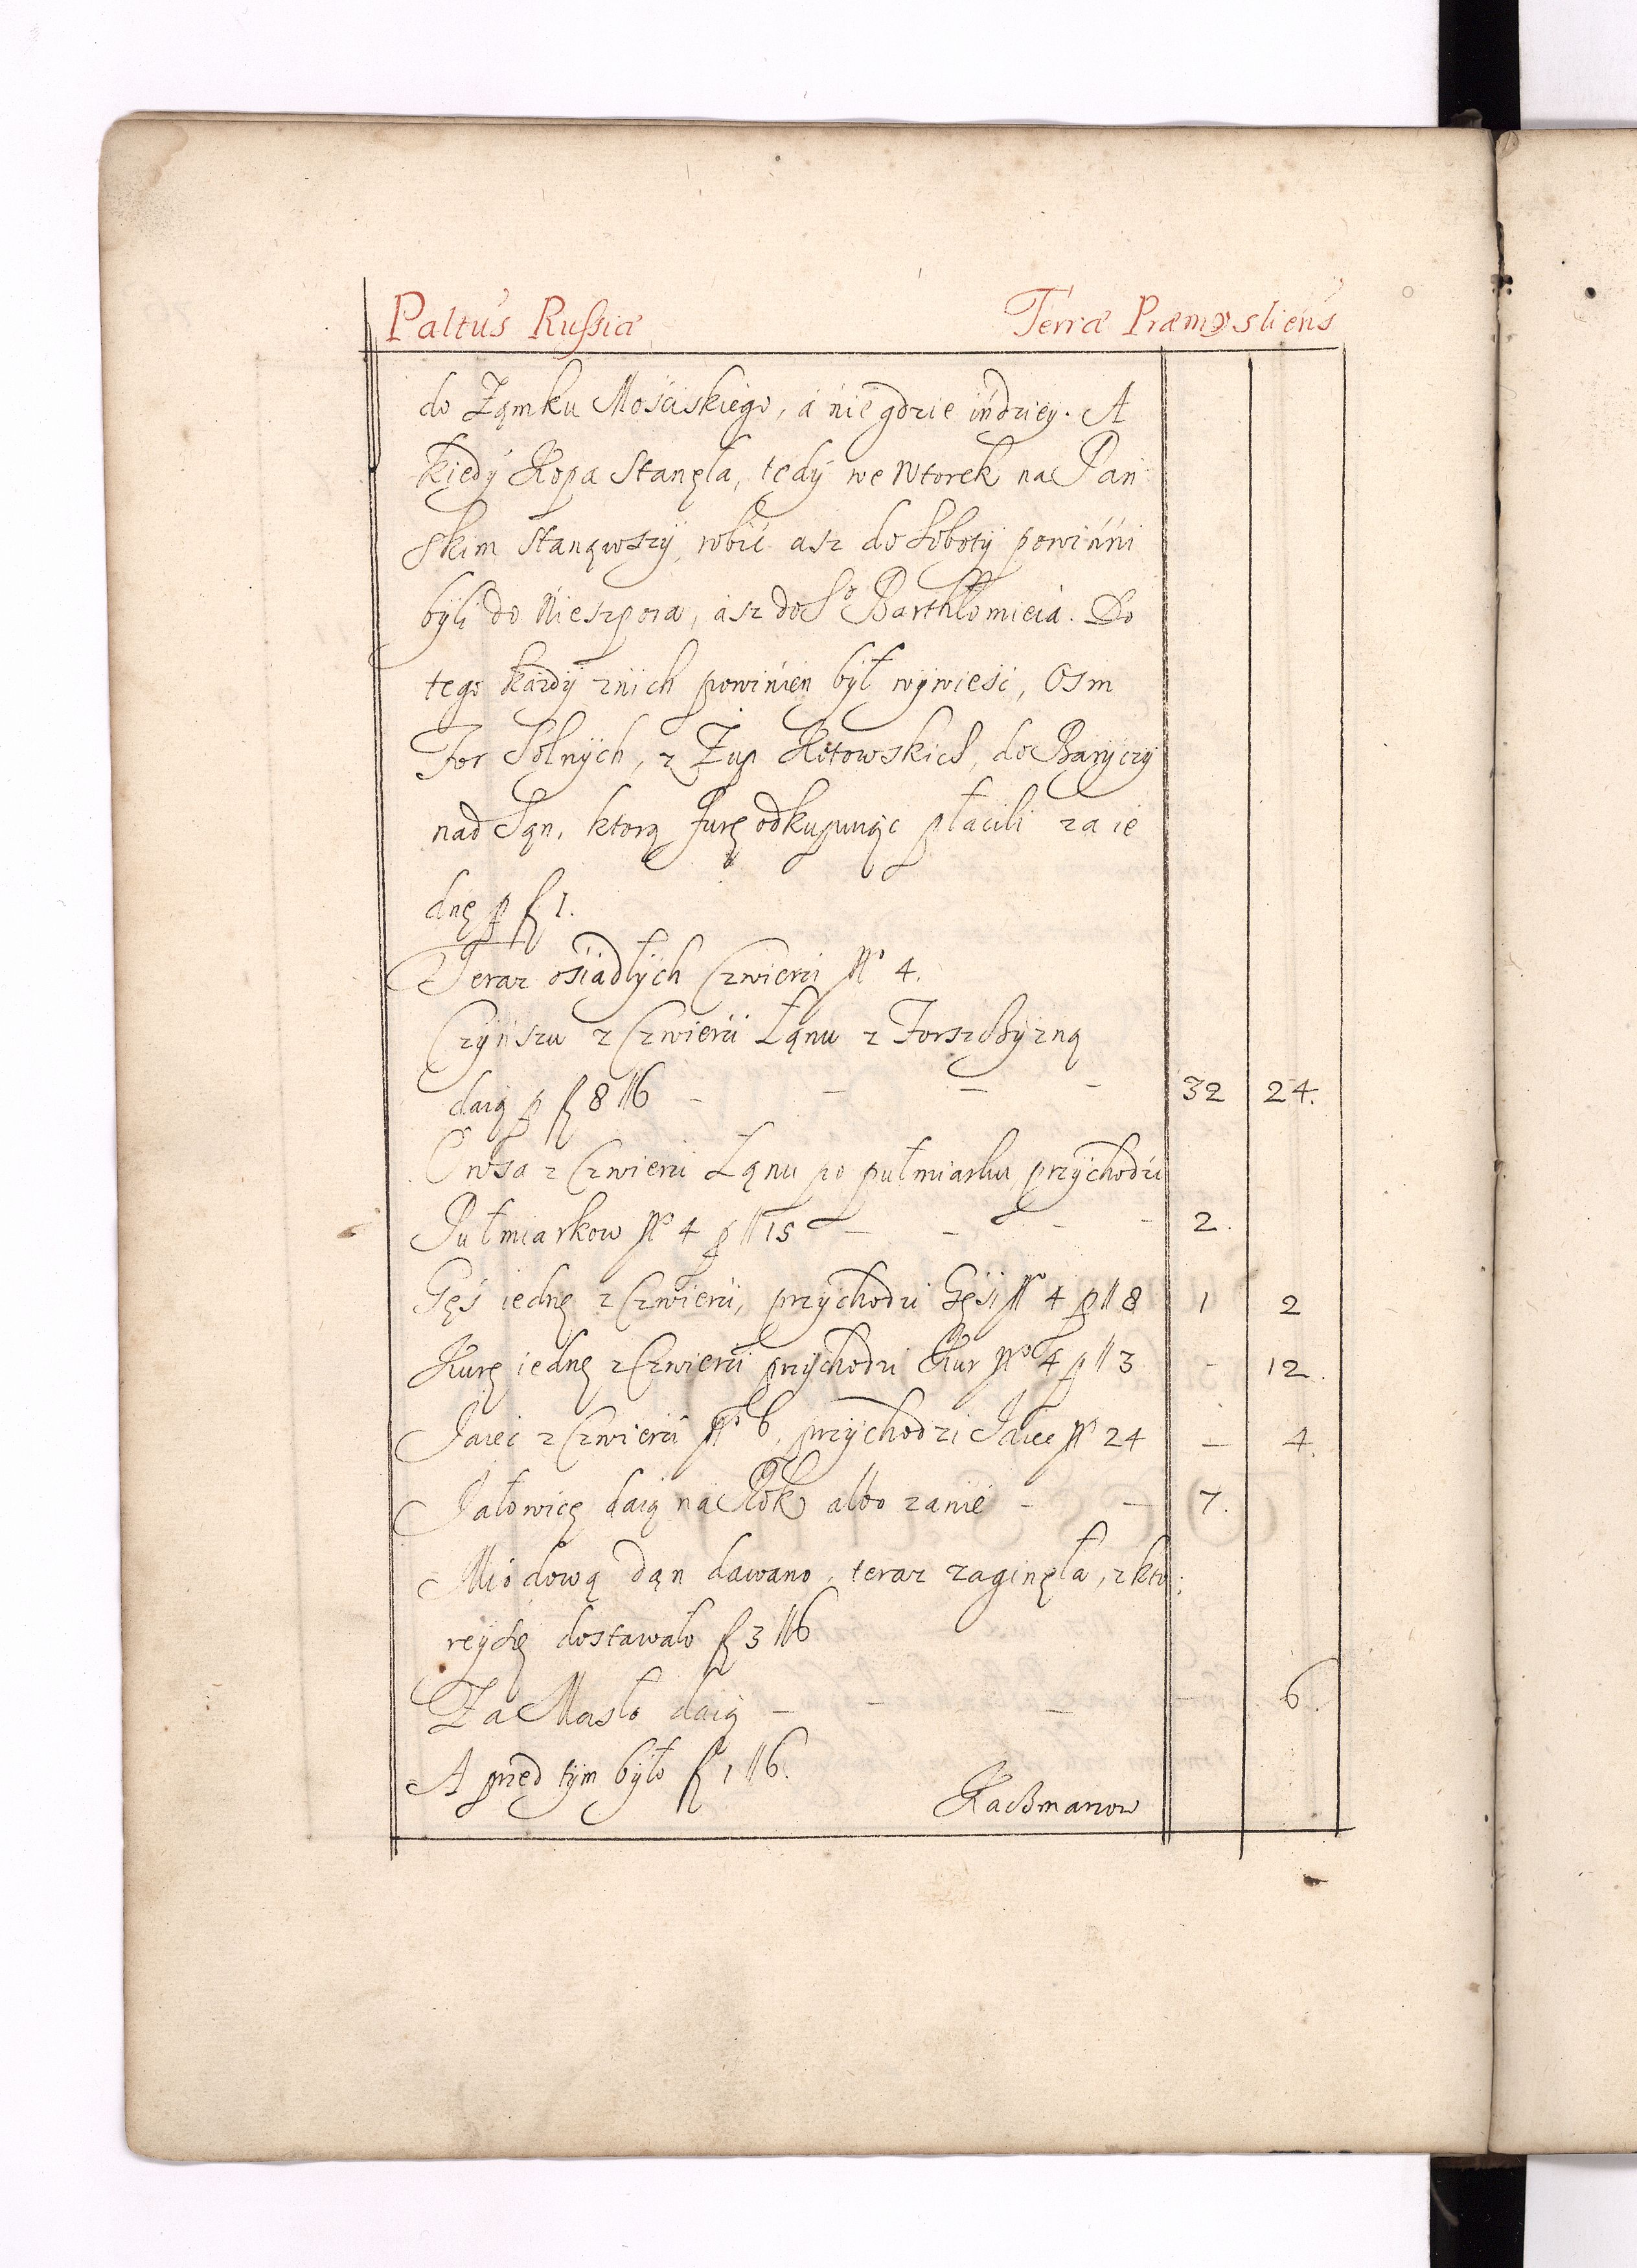 Paltus Russiæ Terræ Præmysliens
do Zamku Mościskiego, á nie gdzie indziey. A
kiedy Kopa stanęła, tedy we Wtorek na Pań
skim stanąwszy, robić asz do Soboty powinni
byli do Nieszpora, ász do So Barthłomieia. Do
tego każdy znich powinien był wywieść, Osm
For Solnych, z Żup Kotowskich, do Baryczy
nad Sąn, ktorą furę odkupuiąc płacili za ie
dnę p f 1.
Teraz ośiadłych Czwierci No 4.
Czynszu z Czwierci Łanu z Forszbyzną
daią p f 8 // 6 - - - - 32 24.
Owsa z Czwierci Łanu po pułmiarku, przychodzi
Pułmiarkow No 4 p // 15 - - - - 2.
Gęś iednę z Czwierci, przychodzi Gęśi No 4 p // 8 1 2
Kurę iednę z Czwierci przychodzi Kur No 4 p // 3 - 12.
Jaiec z Czwierci No 6, przychodzi Jaiec No 24 - 4.
Jałowicę daią na Rok albo zanię - - 7.
Miodową dąn dawano, teraz zaginęła, z kto:
reysię dostawało f 3 // 6
Za Masło daią - - - - 6.
A przed tym było f 1 // 6.
Kaczmarzow